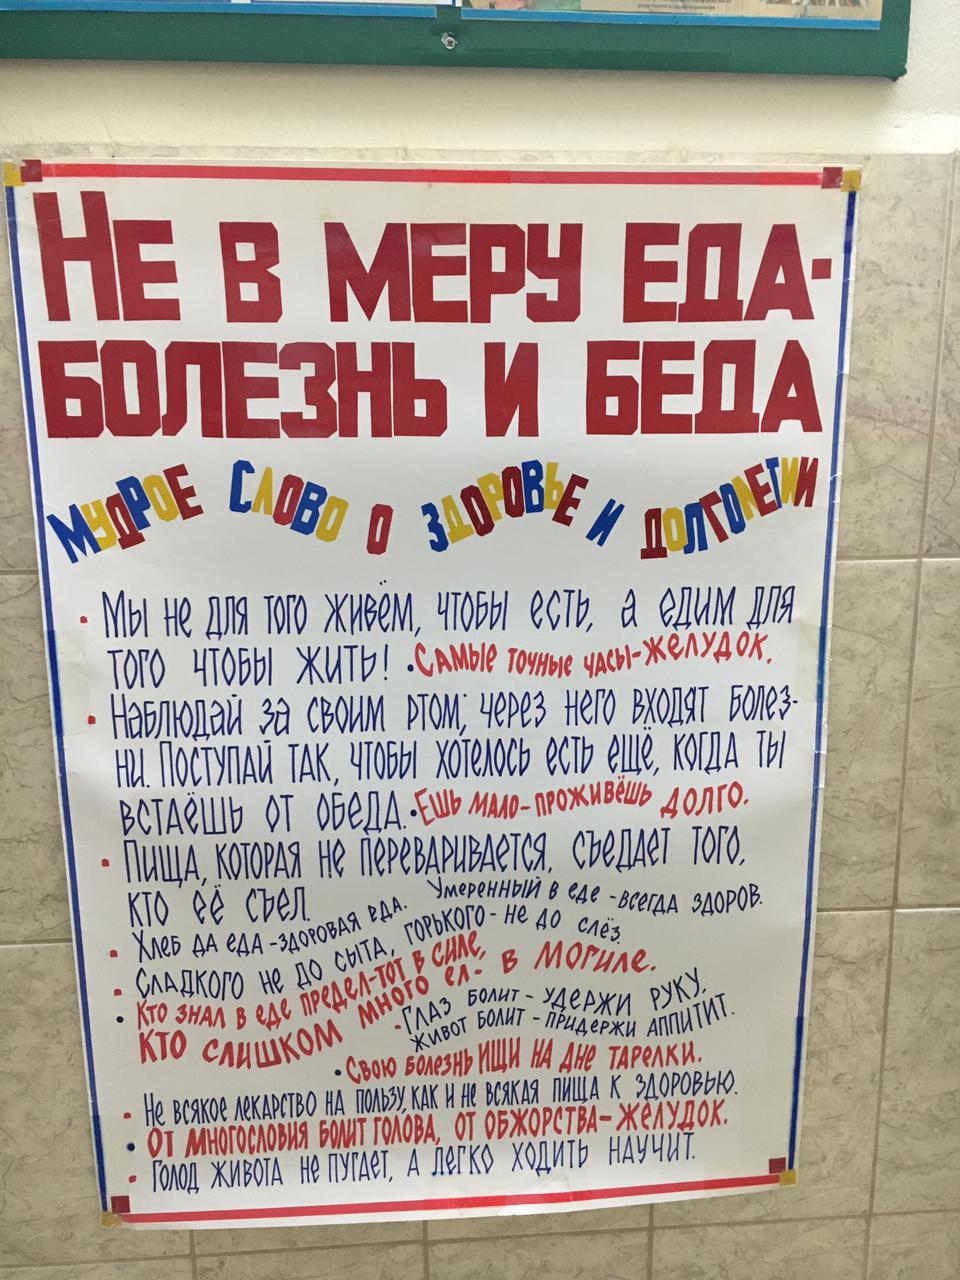 НЕ В МЕРУ ЕДА-
БОЛЕЗНЬ И БЕДА
МУДРОЕ СЛОВО О ЗДОРОВЬЕ И ДОЛГОЛЕТИИ
• Мы не для того живём, чтобы есть, а едим для
того чтобы жить! • Самые точные часы-желудок.
• Наблюдай за своим ртом; через него входят болез-
ни. Поступай так, чтобы хотелось есть ещё, когда ты
встаёшь от обеда. • Ешь мало-проживёшь долго.
• Пища, которая не переваривается, съедает того,
кто её съел.
Умеренный в еде - всегда здоров.
• Хлеб да еда - здоровая еда.
• Сладкого не до сыта, горького - не до слёз.
• Кто знал в еде предел-тот в силе,
кто слишком много ел- в могиле.
• Глаз болит - удержи руку,
живот болит - придержи аппитит.
• Свою болезнь ищи на дне тарелки.
• Не всякое лекарство на пользу, как и не всякая пища к здоровью.
• От многословия болит голова, от обжорства-желудок.
• Голод живота не пугает, а легко ходить научит.